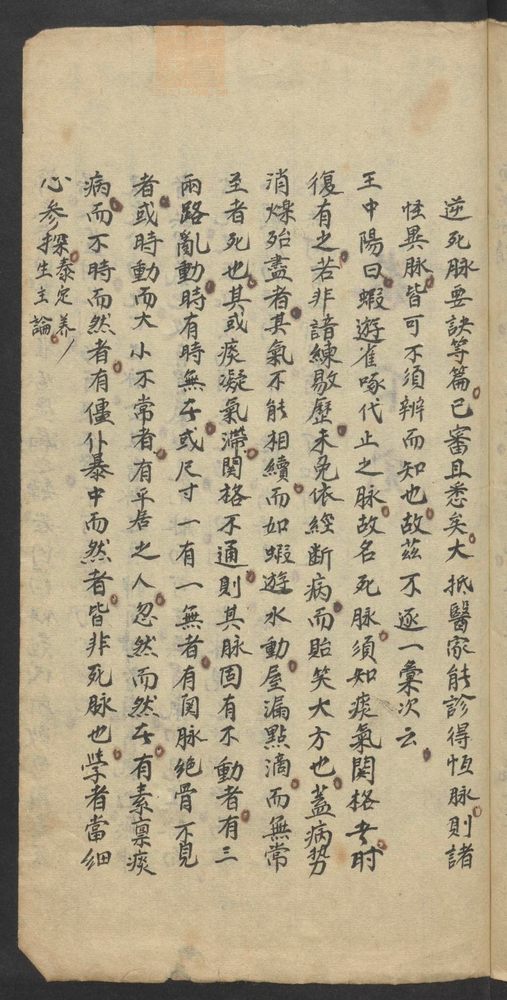 逆死脉要訣等篇已審且悉矣大抵醫家能診得恒脉則諸
怪異脉皆可不須辨而知也故茲不逐一彙次云
王中陽曰蝦遊雀啄代止之脉故名死脉須知痰氣関格者时
復有之若非諳練歇歷未免依經断病而貽笑大方也蓋病势
消爍殆盡者其氣不能相續而如蝦遊水動屋漏點滴而無常
至者死也其或痰凝氣滞関格不通則其脉固有不動者有三
兩路亂動時有時無者或尺寸一有一無者有関脉絶骨不見
者或時動而大小不常者有平居之人忽然而然者有素禀痰
病而不時而然者有僵仆暴中而然者皆非死脉也學者當細
心参探泰定养
生主論